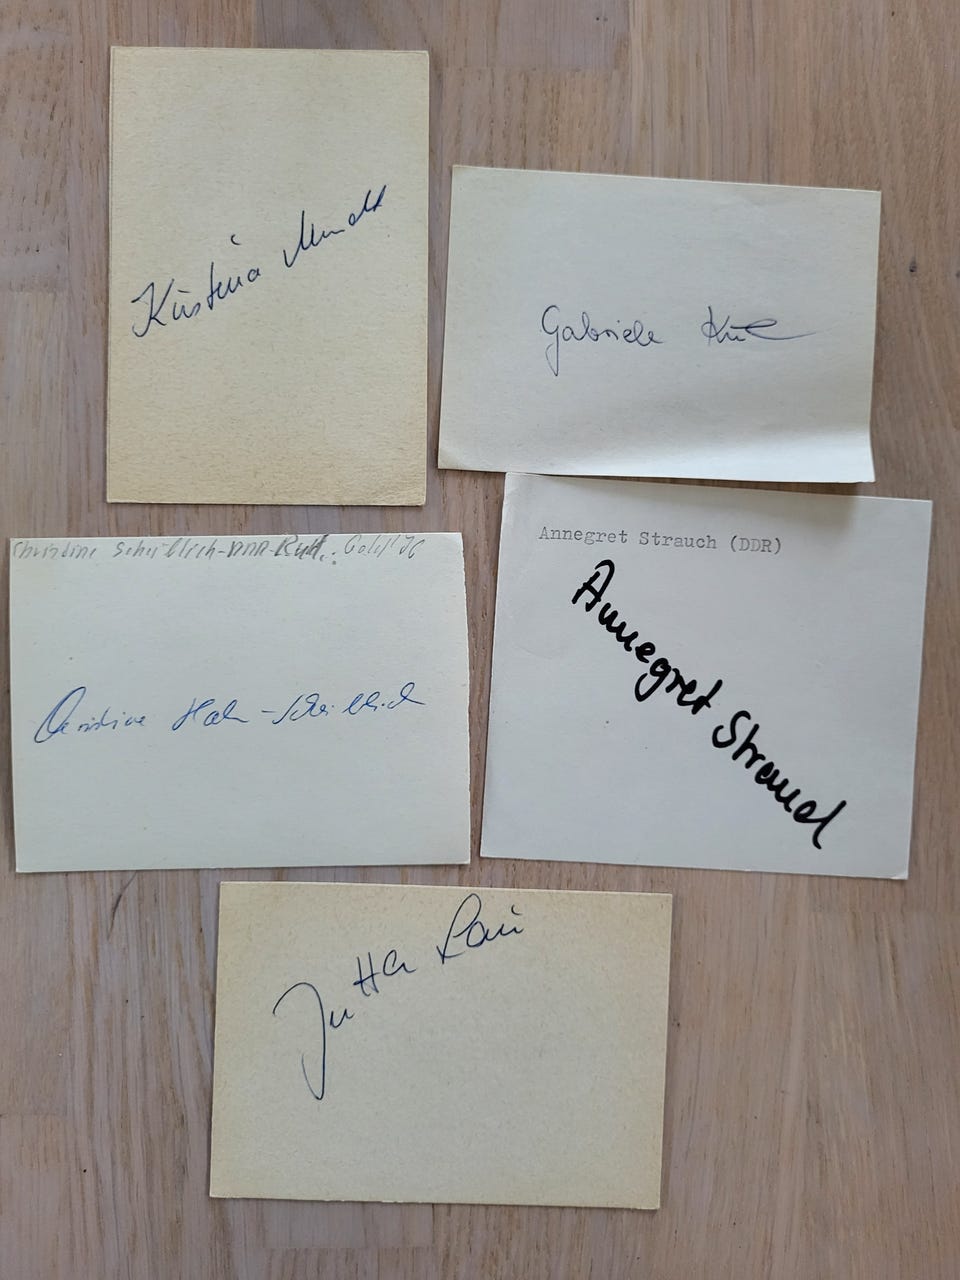 Kirstina Mundt
Gabriele
Christine Scheiblich-DDR-Rud.: Gold '76
Christine Hahn-Scheiblich
Annegret Strauch (DDR)
Annegret Strauch
Jutta Lau